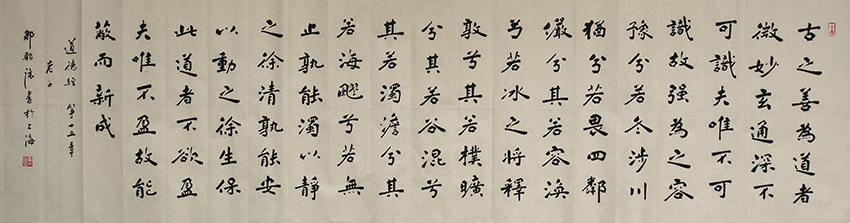 古之善為道者
微妙玄通深不
可識夫唯不可
識故强為之容
豫兮若冬涉川
猶兮若畏四鄰
儼兮其若容渙
兮若冰之將釋
敦兮其若樸曠
兮其若谷混兮
其若濁澹兮其
若海飂兮若無
止孰能濁以靜
之徐清孰能安
以動之徐生保
此道者不欲盈
夫唯不盈故能
蔽而新成
道德經 第十五章
老子
書於上海